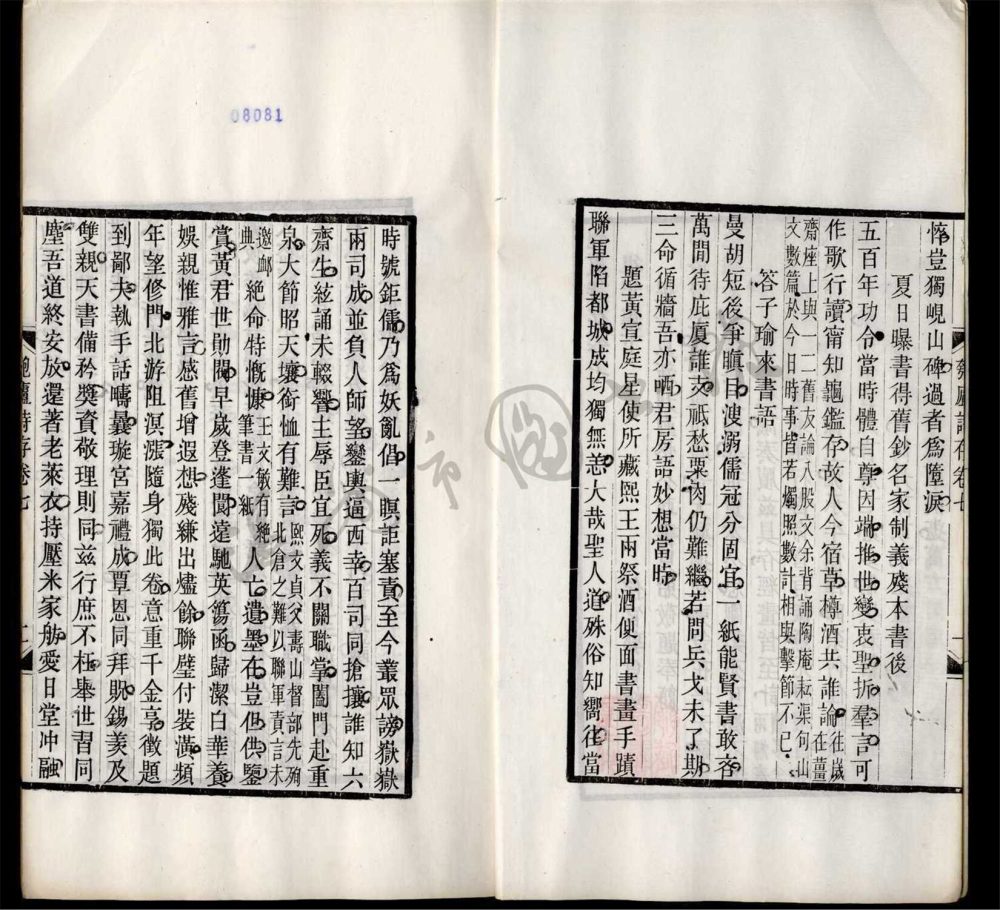 悴豈獨峴山碑過者爲墮淚
夏日曝書得舊鈔名家制義殘本書後
五百年功令當時體自尊因端推世變衷聖折羣言可
作歌行讀甯知龜鑑存故人今宿草樽酒共誰論往歲在薑
齋座上與一二舊友論八股文余背誦陶庵耘渠句山
文數篇於今日時事皆若燭照數計相與擊節不已
答子瑜來書語
曼胡短後爭瞋目溲溺儒冠分固宜一紙能賢書敢吝
萬間待庇厦誰支祗愁粟肉仍難繼若問兵戈未了期
三命循牆吾亦哂君房語妙想當時
題黃宣庭星使所藏熙王兩祭酒便面書畫手蹟
聯軍陷都城成均獨無恙大哉聖人道殊俗知嚮往當
時號鉅儒乃爲妖亂倡一瞑詎塞責至今叢眾謗嶽嶽
兩司成並負人師望鑾輿逼西幸百司同搶攘誰知六
齋生絃誦未輟響主辱臣宜死義不關職掌闔門赴重
泉大節昭天壤銜恤有難言熙文貞父壽山督部先殉
北倉之難以聯軍責言未
邀卹典絕命特慨慷王文敏有絕
筆書一紙人亡遺墨在豈但供鑒
賞黃君世勛閥早歲登蓬閬遠馳英蕩函歸潔白華養
娛親惟雅言感舊增遐想殘縑出燼餘聯璧付裝潢頻
年望修門北游阻溟漲隨身獨此卷意重千金享徵題
到鄙夫執手話疇曩璇宮嘉禮成覃恩同拜貺錫羨及
雙親天書備矜獎資敬理則同兹行庶不枉舉世習同
塵吾道終安放還著老萊衣持壓米家舫愛日堂冲融
卷七
08081